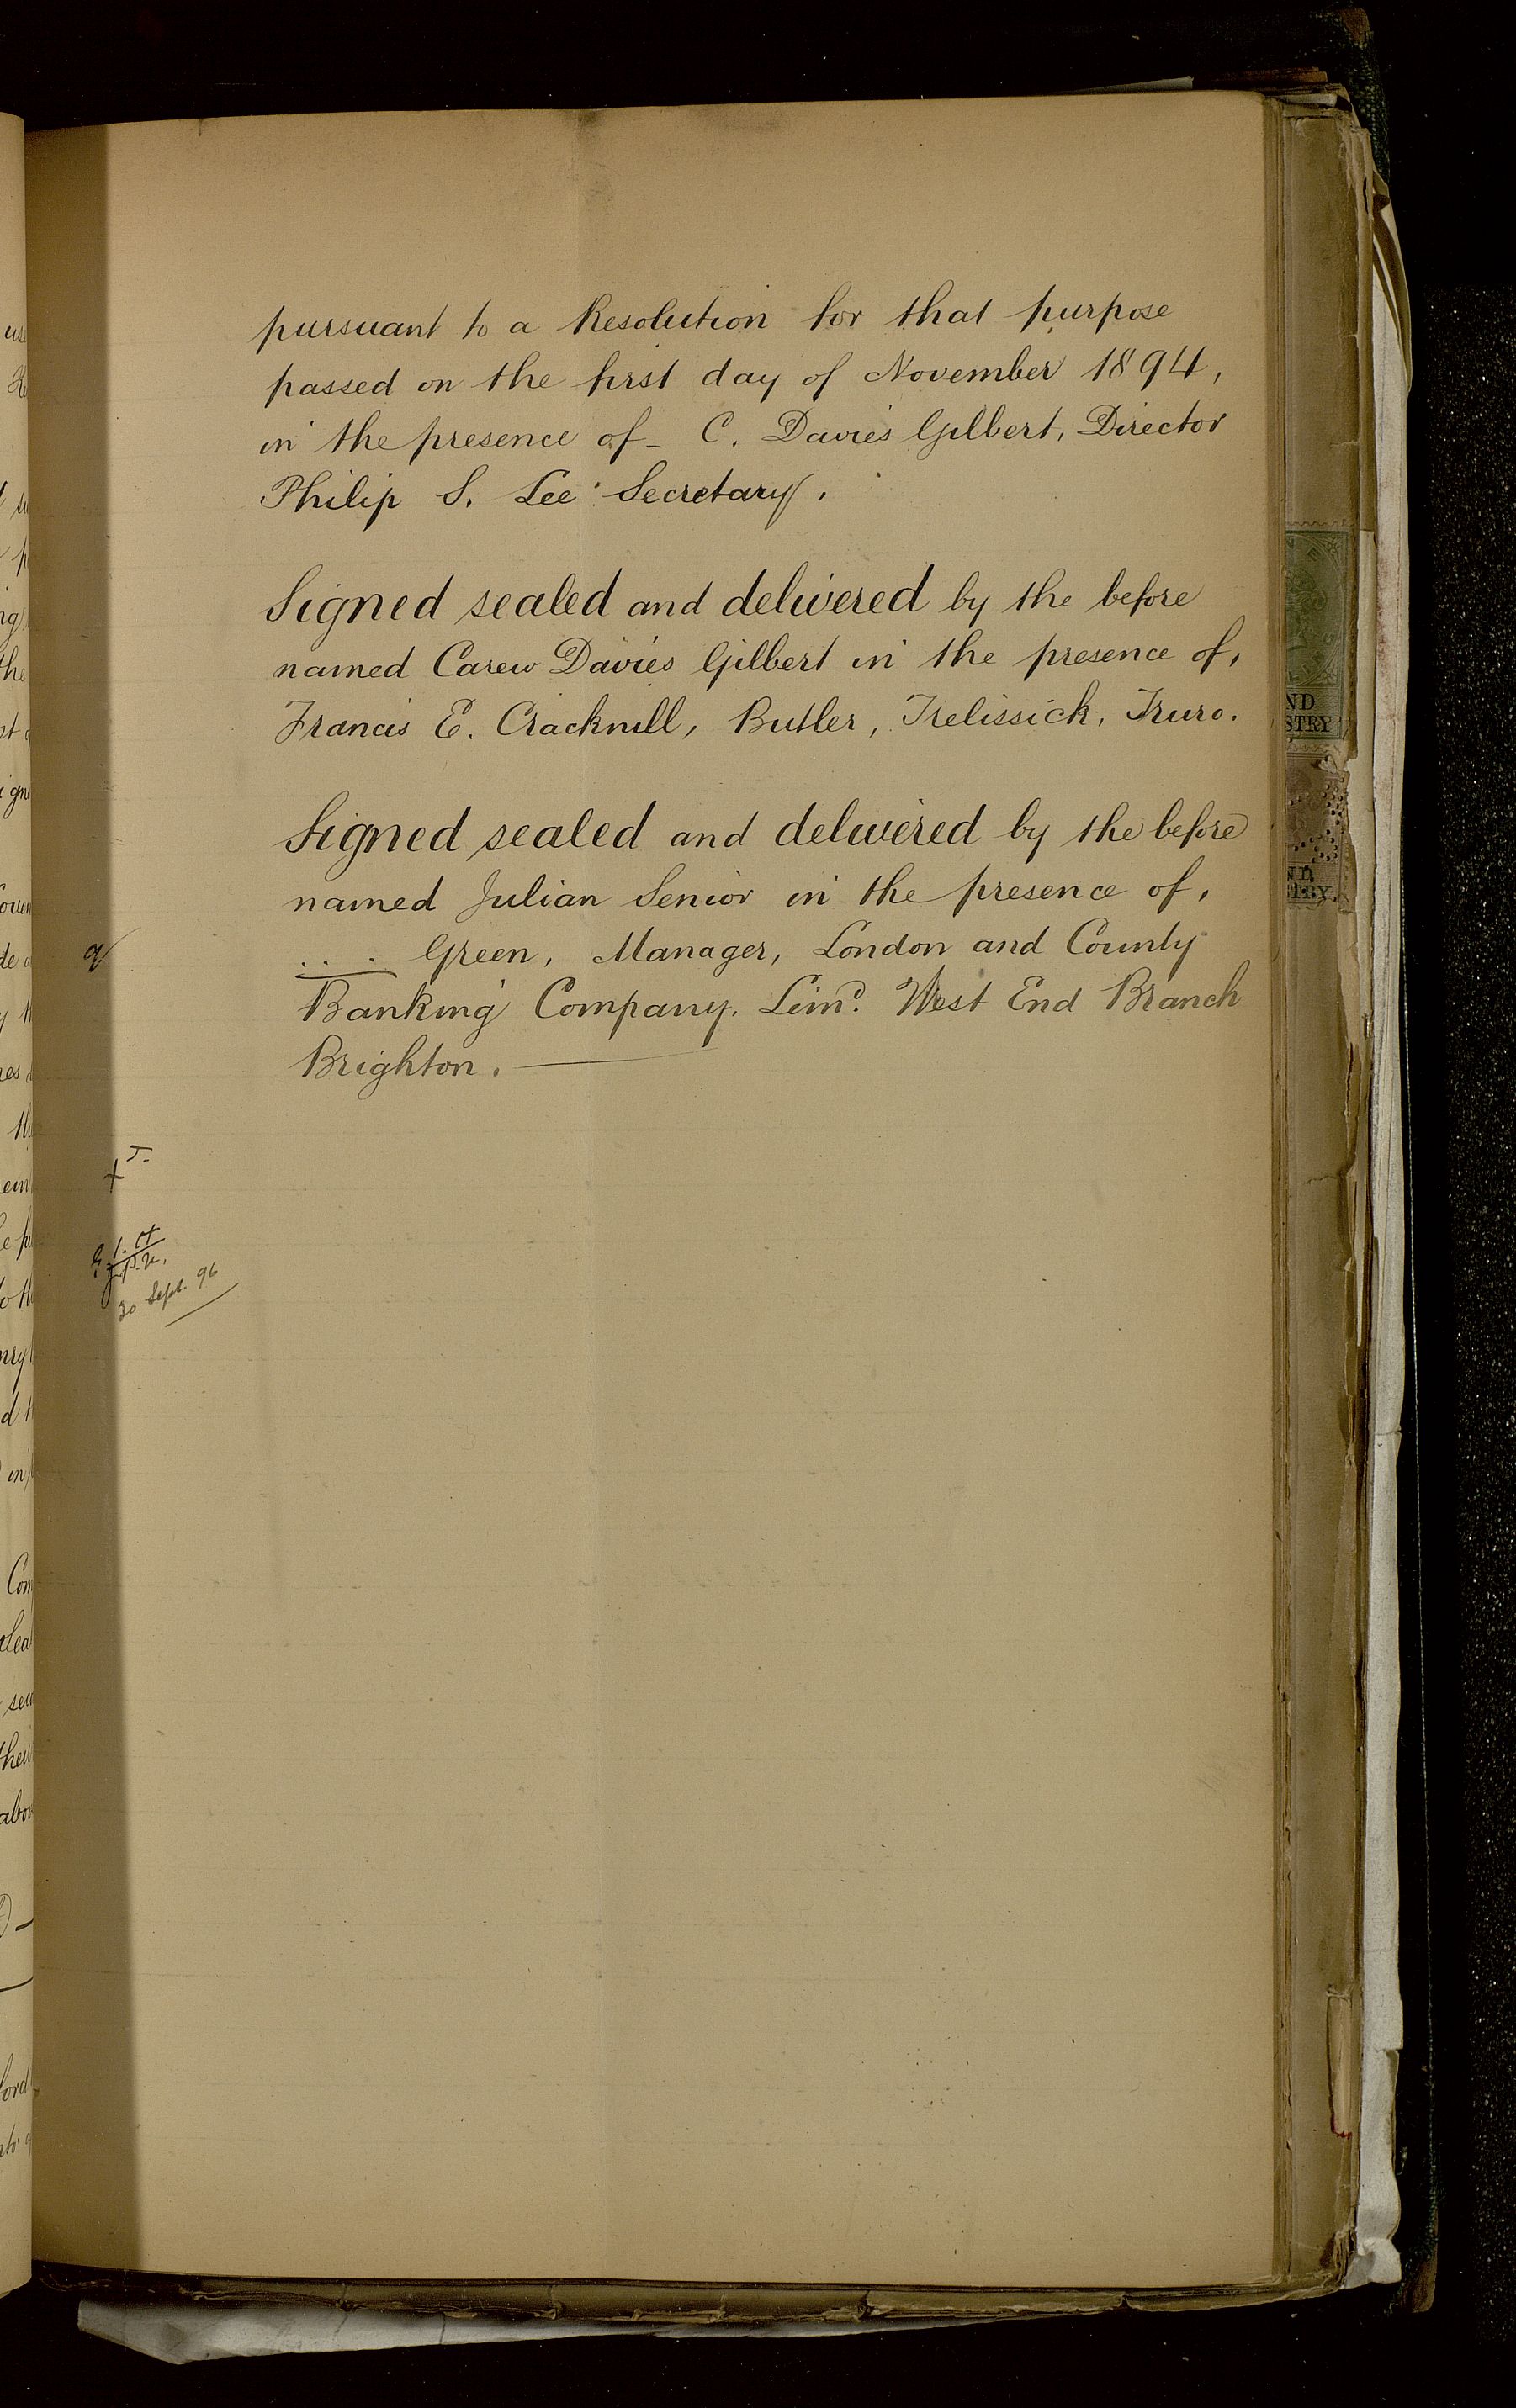 pursuant to a Resolution for that purpose
passed on the first day of November 1894,
in the presence of - C. Davies Gilbert, Director
Philip S. Lee Secretary.
Signed sealed and delivered by the before
named Carew Davies Gilbert in the presence of,
Francis E. Cracknill, Butler, Trelissick, Truro.
Signed sealed and delivered by the before
named Julian Senior in the presence of,
. . . Green, Manager, London and County
Banking Company. Limd. West End Branch
Brighton.
30 Sept. 96
ND
STRY